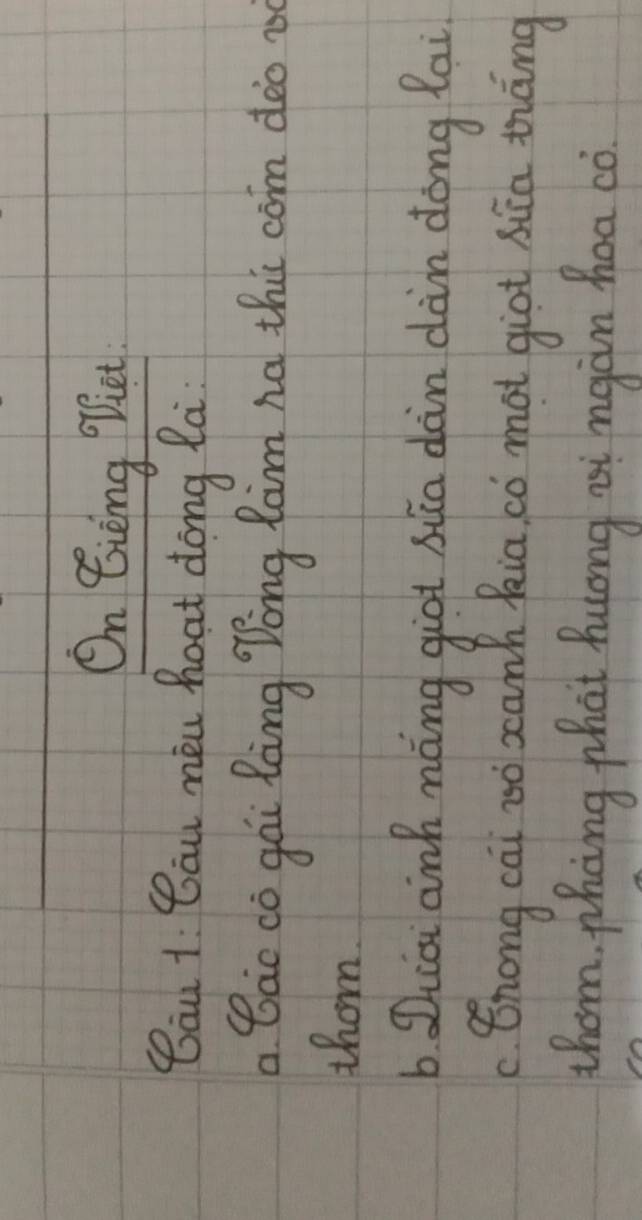 Ôn Tiếng Việt:
Câu 1: Câu nêu hoạt động là:
a. Các cô gái làng Vòng làm ra thứ cốm dẻo và
thơm.
b. Dưới ánh nắng giọt sữa dần dần đông lại.
c. Trong cái vỏ xanh kia, có một giọt sữa trắng
thơm, phảng phất hương vị ngàn hoa cỏ.